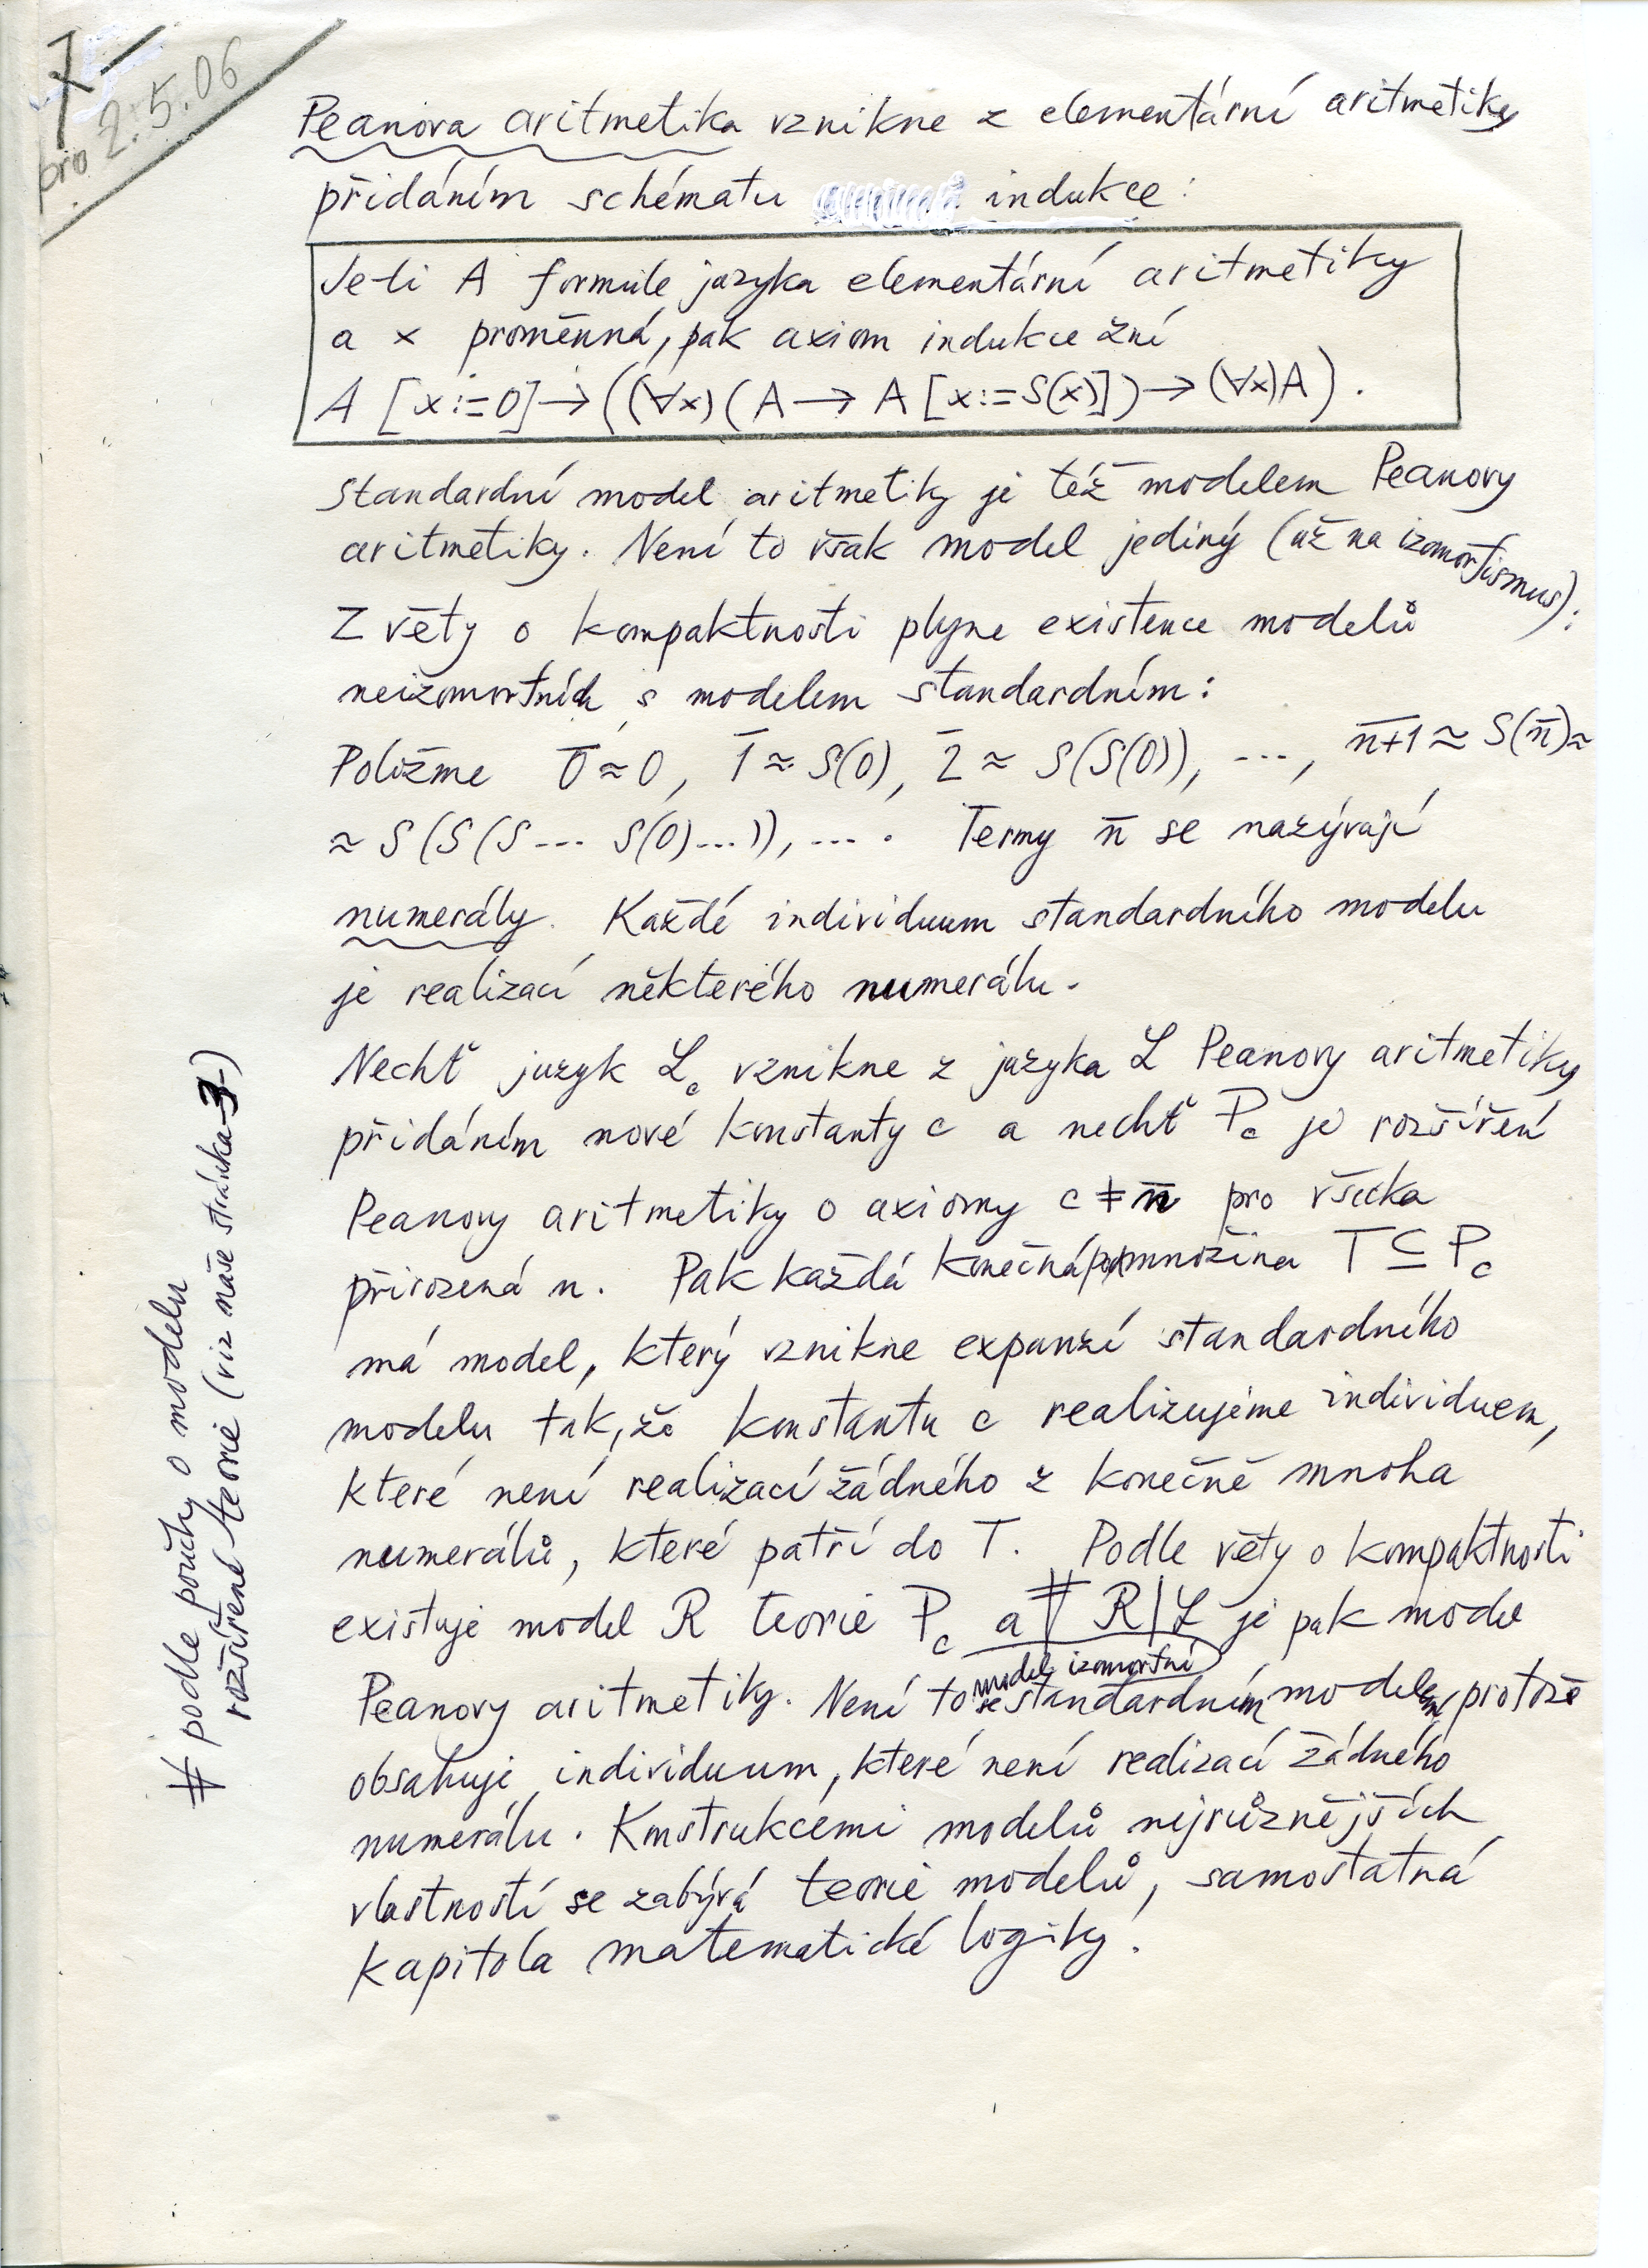 7
pro 2.5.06
Peanova aritmetika vznikne z elementární aritmetiky
přidáním schématu indukce:
Je-li A formule jazyka elementární aritmetiky
a x proměnná, pak axiom indukce zní
A [x:=0]→((∀x)(A→A[x:=S(x)])→(∀x)A).
Standardní model aritmetiky je též modelem Peanovy
aritmetiky. Není to však model jediný (až na izomorfismus):
Z věty o kompaktnosti plyne existence modelů
neizomorfních s modelem standardním:
Položme 0̅≈0, 1̅≈S(0), 2̅≈S(S(0)), ..., n̅+̅1̅≈S(n̅)≈
≈S(S(S...S(0)...)),.... Termy n̅ se nazývají
numerály. Každé individuum standardního modelu
je realizací některého numerálu.
Nechť jazyk ℒc vznikne z jazyka ℒ Peanovy aritmetiky
přidáním nové konstanty c a nechť Pc je rozšíření
Peanovy aritmetiky o axiomy c≠n̅ pro všecka
přirozená n. Pak každá konečná podmnožina T⊆Pc
má model, který vznikne expanzí standardního
modelu tak, že konstantu c realizujeme individuem,
které není realizací žádného z konečně mnoha
numerálů, které patří do T. Podle věty o kompaktnosti
existuje model R teorie Pc a # R|ℒ je pak model
Peanovy aritmetiky. Není to model izomorfní se standardním modelem, protože
obsahuje individuum, které není realizací žádného
numerálu. Konstrukcemi modelů nejrůznějších
vlastností se zabývá teorie modelů, samostatná
kapitola matematické logiky.
# podle poučky o modelu
rozšířené teorie (viz naše stránka -3-)